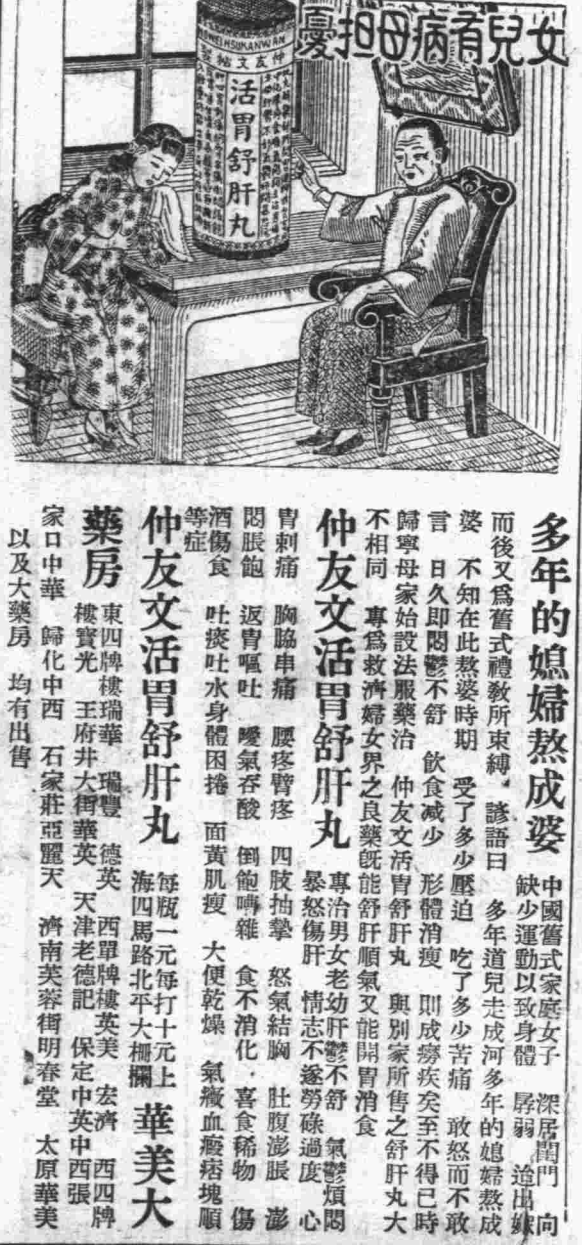 女兒有病母担憂
HUOWEISHUKANWAN
仲友文
活胃舒肝丸
多年的媳婦熬成婆
中國舊式家庭女子 深居閨門 向
缺少運動以致身體 孱弱 迨出嫁
而後又爲舊式禮教所束縛。諺語曰 多年道兒走成河多年的媳婦熬成
婆 不知在此熬婆時期 受了多少壓迫 吃了多少苦痛 敢怒而不敢
言 日久即悶鬱不舒 飲食减少 形體消瘦 則成癆疾矣至不得已時
歸寧母家始設法服藥治 仲友文活胃舒肝丸 與別家所售之舒肝丸大
不相同 專爲救濟婦女界之良藥旣能舒肝順氣又能開胃消食
仲友文活胃舒肝丸
專治男女老幼肝鬱不舒 氣鬱煩悶
暴怒傷肝 情志不遂勞碌過度 心
胃刺痛 胸脇串痛 腰疼臂疼 四肢抽摯 怒氣結胸 肚腹澎脹 澎
悶脹飽 返胃嘔吐 噯氣吞酸 倒飽嘈雜 食不消化·喜食稀物 傷
酒傷食 吐痰吐水身體困捲 面黃肌瘦 大便乾燥 氣癥血瘕痞塊順
等症
仲友文活胃舒肝丸
每瓶一元每打十元上
海四馬路北平大柵欄
華美大
藥房
東四牌樓瑞華 瑞豐 德英 西單牌樓英美 宏濟 西四牌
樓寶光 王府井大街華英 天津老德記 保定中英中西張
家口中華 歸化中西 石家莊亞麗天 濟南芙蓉街明春堂 太原華美
以及大藥房 均有出售